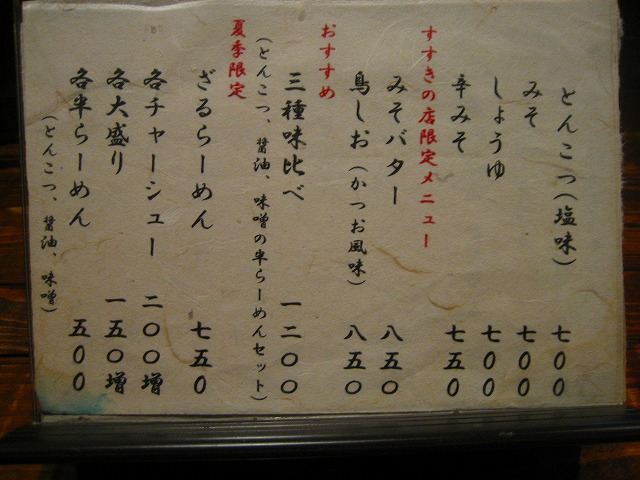 とんこつ（塩味） 七00
みそ 七00
しょうゆ 七00
辛みそ 七五0
すすきの店限定メニュー
みそバター 八五0
鳥しお（かつお風味） 八五0
おすすめ
三種味比べ 一二00
（とんこつ、醤油、味噌の半らーめんセット）
夏季限定
ざるらーめん 七五0
各チャーシュー 二00増
各大盛り 一五0増
各半らーめん 五00
（とんこつ、醤油、味噌）